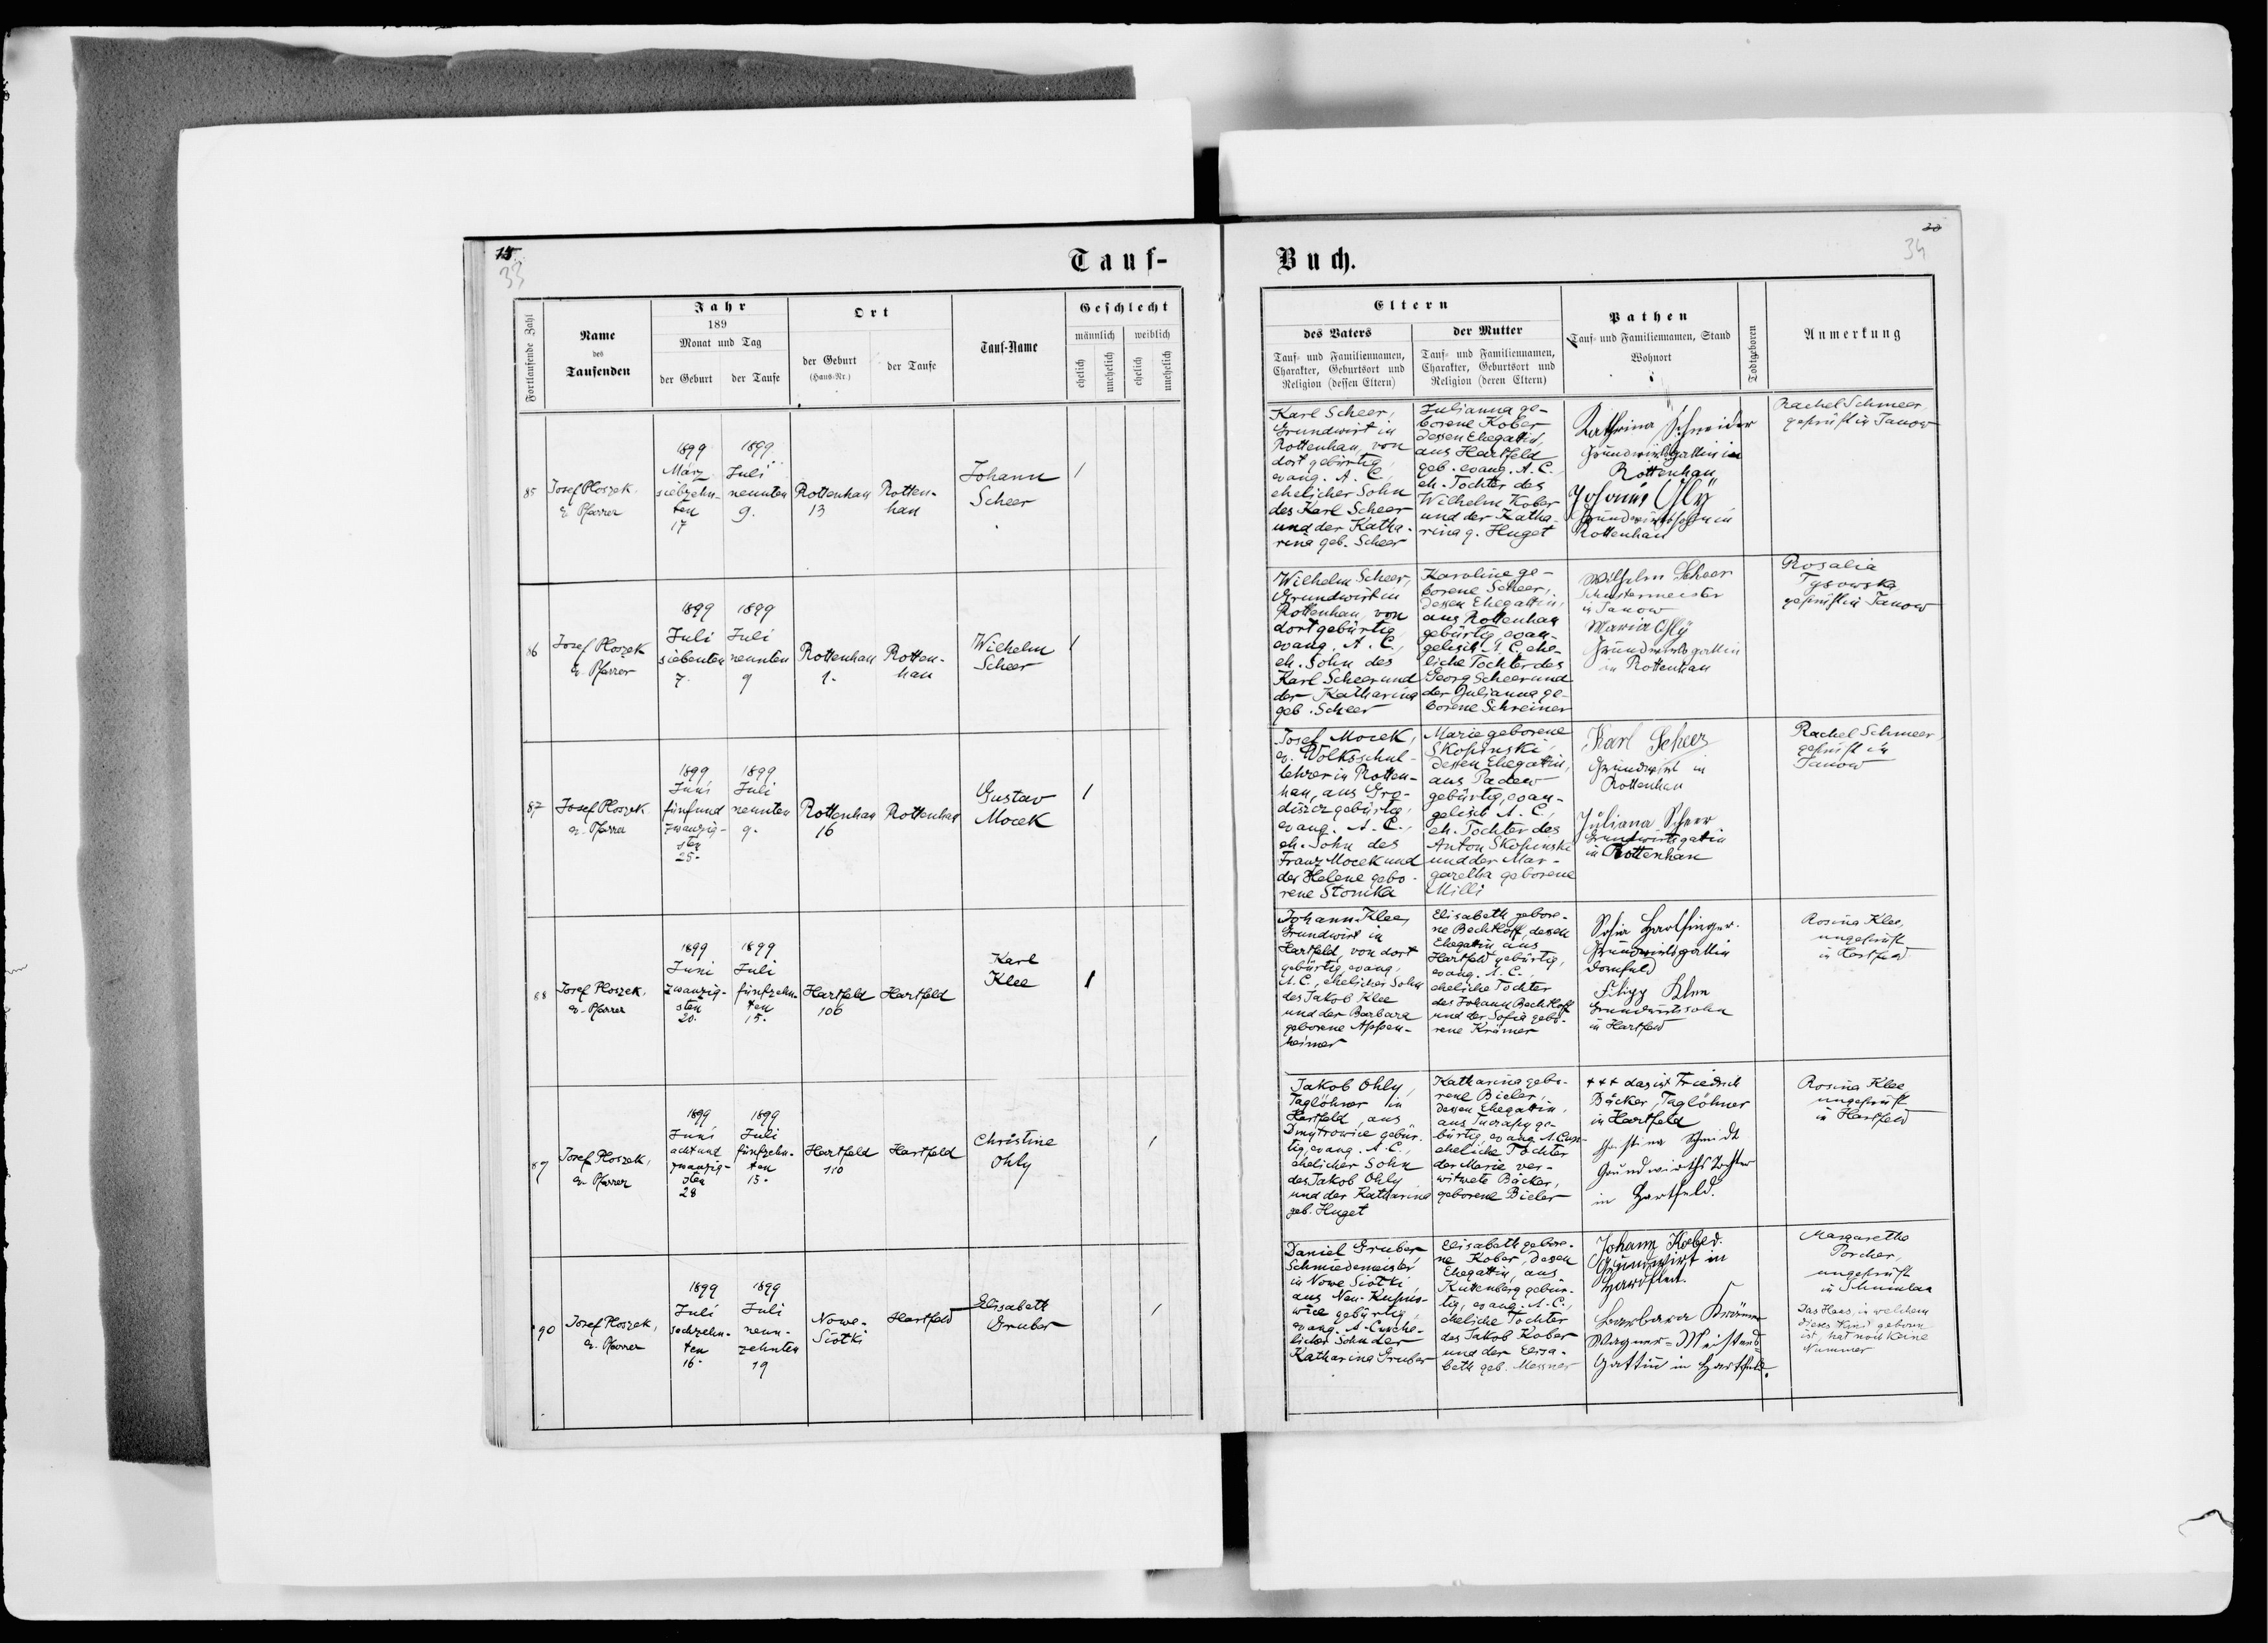 33
34
Tauf-
Buch.
Fortlaufende Zahl
Name
des
Taufenden
Jahr
189
Monat und Tag
der Geburt
der Taufe
Ort
der Geburt
(Haus-Nr.)
der Taufe
Tauf-Name
Geschlecht
männlich
weiblich
ehelich
unehelich
ehelich
unehelich
Eltern
des Vaters
Tauf- und Familiennamen,
Charakter, Geburtsort und
Religion (dessen Eltern)
der Mutter
Tauf- und Familiennamen,
Charakter, Geburtsort und
Religion (deren Eltern)
Pathen
Tauf- und Familiennamen, Stand
Wohnort
Todtgeboren
Anmerkung
85
Josef Ploszek,
ev. Pfarrer
1899
März
siebzehn-
ten
17
1899
Juli
neunten
9.
Rottenhan
13
Rotten-
han
Johann
Scheer
1
Karl Scheer,
Grundwirt in
Rottenhan, von
dort gebürtig,
evang. A. C.,
ehelicher Sohn
des Karl Scheer
und der Katha-
rina geb. Scheer
Julianna ge-
borene Kober
dessen Ehegattin,
aus Hartfeld
geb. evang. A. C.
eh. Tochter des
Wilhelm Kober
und der Katha-
rina g. Huget
Kathrina Schneider
Grundwirtsgattin in
Rottenhan
Rottenhan
Rachel Schmeer,
geprüft in Janow
86
Josef Ploszek
ev. Pfarrer
1899
Juli
siebenten
7.
1899
Juli
neunten
9
Rottenhan
1.
Rotten-
han
Wilhelm
Scheer
1
Wilhelm Scheer,
Grundwirt in
Rottenhan, von
dort gebürtig,
evang. A. C.,
eh. Sohn des
Karl Scheer und
der Katharina
geb. Scheer
Karoline ge-
borene Scheer,
dessen Ehegattin,
aus Rottenhan
gebürtig, evan-
gelisch A. C. ehe-
liche Tochter des
Georg Scheer und
der Julianna ge-
borene Schreiner
Wilhelm Scheer
Schustermeister
in Janow
Maria Ohly
Grundwirtsgattin
in Rottenhan
Rosalia
Tysowska,
geprüft in Janow
87
Josef Ploszek
ev. Pfarrer
1899
Juni
fünfund
zwanzig-
sten
25.
1899
Juli
neunten
9.
Rottenhan
16
Rottenhan
Gustav
Mocek
1
Josef Mocek,
ev. Volksschul-
lehrer in Rotten-
han, aus Gro-
disicz gebürtig,
evang. A. C.,
eh. Sohn des
Franz Mocek und
der Helene gebo-
rene Stonika
Marie geborene
Skopinski,
dessen Ehegattin,
aus Padew
gebürtig, evan-
gelisch A. C.,
eh. Tochter des
Anton Skopinski
und der Mar-
garetha geborene
Milli
Karl Scheer
Grundwirt in
Rottenhan
Juliana Scheer
Grundwirtsgatin
in Rottenhan
Rachel Schmeer,
geprüft in
Janow
88
Josef Ploszek,
ev. Pfarrer
1899
Juni
zwanzig-
sten
20.
1899
Juli
fünfzehn-
ten
15.
Hartfeld
106
Hartfeld
Karl
Klee
1
Johann Klee,
Grundwirt in
Hartfeld, von dort
gebürtig, evang.
A. C., ehelicher Sohn
des Jakob Klee
und der Barbara
geborene Appen-
heimer
Elisabeth gebore-
ne Bechtloff, dessen
Ehegattin, aus
Hartfeld gebürtig,
evang. A. C.,
eheliche Tochter
des Johann Bechtloff
und der Sofia gebo-
rene Krämer
Grundwirtsgattin
Dornfeld
Filipp Klee
Grundwirtssohn
in Hartfeld
Rosina Klee,
ungeprüft
in Hartfeld
89
Josef Ploszek,
ev. Pfarrer
1899
Juni
achtund
zwanzig-
sten
28
1899
Juli
fünfzehn-
ten
15.
Hartfeld
110
Hartfeld
Christine
Ohly
1
Jakob Ohly,
Taglöhner in
Hartfeld, aus
Dmytrowice gebür-
tig, evang. A. C.,
ehelicher Sohn
des Jakob Ohly
und der Katharina
geb. Huget
Katharina gebo-
rene Bieler,
dessen Ehegattin,
bürtig, evang. A. C.
eheliche Tochter
der Marie ver-
witwete Bäcker,
geborene Bieler
+++ das ist Friedrich
Bäcker Taglöhner
in Hartfeld
Christina Schmidt
Grundwirthstochter
in Hartfeld.
Rosina Klee
ungeprüft
in Hartfeld
90
Josef Ploszek,
ev. Pfarrer
1899
Juli
sechzehn-
ten
16.
1899
Juli
neun-
zehnten
19
Nowe-
Siolki
Hartfeld
Elisabeth
Gruber
1
Daniel Gruber
Schmiedemeister
in Nowe Siolki
aus Neu-Kupno-
wice gebürtig,
evang. A. C., ehe-
licher Sohn der
Katharina Gruber
Elisabeth gebore-
ne Kober, dessen
Ehegattin, aus
Kuttenberg gebür-
tig, evang. A. C.,
eheliche Tochter
des Jakob Kober
und der Elisa-
beth geb. Messner
Johann Kober
Grundwirt in
Hartfeld.
Barbara Krämer
Wagner-Meisters
Gattin in Hartfeld.
Margaretha
Porcher,
ungeprüft
in Schumlau
Das Haus, in welchem
dieses Kind geboren
ist, hat noch keine
Nummer